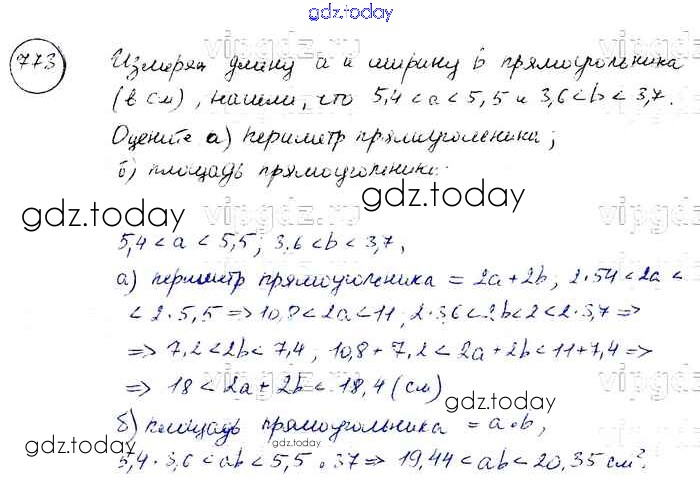 gdz.today
773
Измеряя длину a и ширину b прямоугольника
(в см), нашли, что 5,4 < a < 5,5 и 3,6 < b < 3,7.
Оцените а) периметр прямоугольника;
б) площадь прямоугольника.
gdz.today
gdz.today
5,4 < a < 5,5; 3,6 < b < 3,7,
а) периметр прямоугольника = 2a + 2b; 2·54 < 2a <
< 2·5,5 => 10,8 < 2a < 11; 2·3,6 < 2b < 2 < 2·3,7 =>
=> 7,2 < 2b < 7,4; 10,8 + 7,2 < 2a + 2b < 11 + 7,4 =>
=> 18 < 2a + 2b < 18,4 (см)
gdz.today
б) площадь прямоугольника = a·b,
gdz.today
gdz.today
5,4·3,6 < ab < 5,5·37 => 19,44 < ab < 20,35 см².